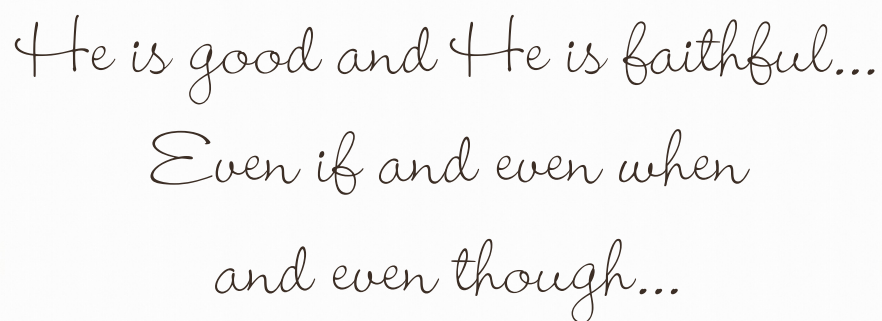 He is good and He is faithful...
Even if and even when
and even though...